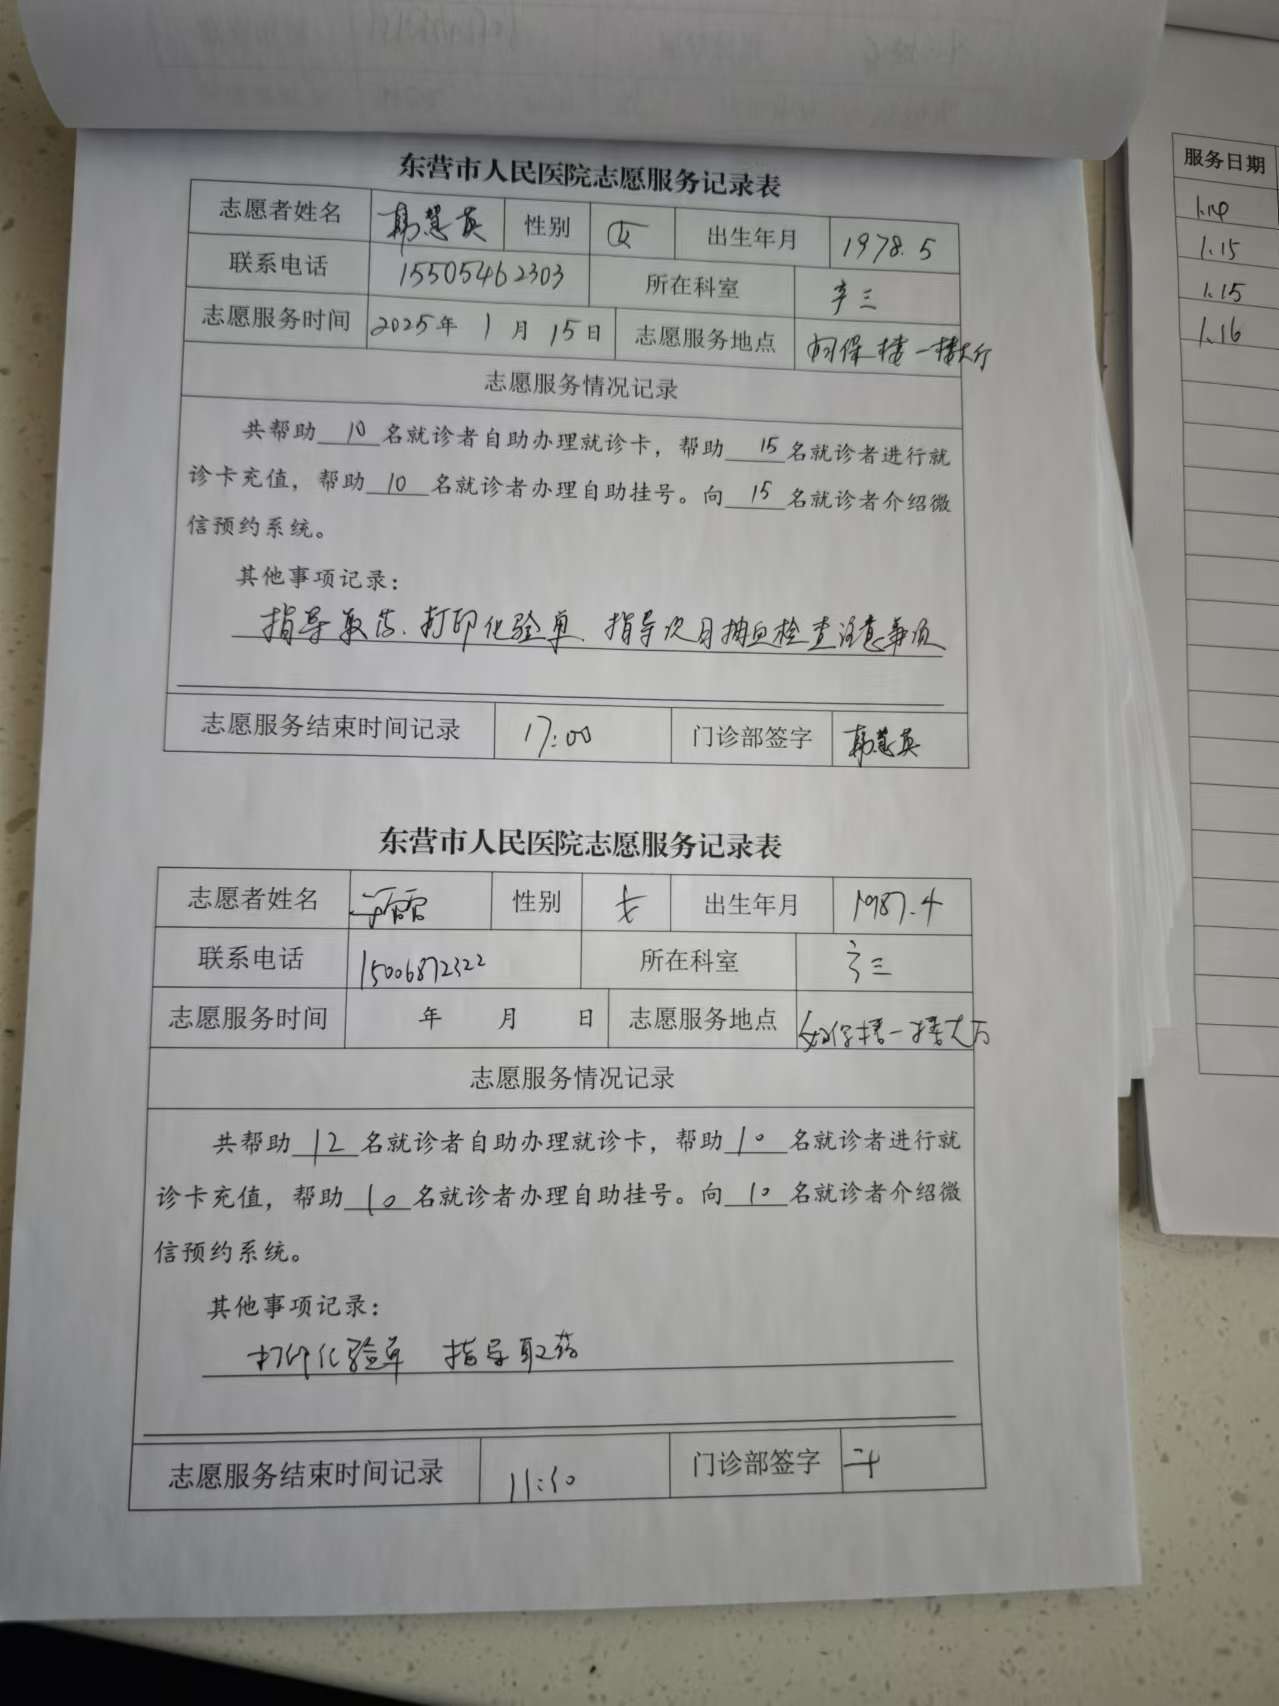 东营市人民医院志愿服务记录表
志愿者姓名 韩慧英 性别 女 出生年月 1978.5
联系电话 15505462303 所在科室 产三
志愿服务时间 2025年 1月 15日 志愿服务地点 妇保楼一楼大厅
志愿服务情况记录
共帮助 10 名就诊者自助办理就诊卡，帮助 15 名就诊者进行就
诊卡充值，帮助 10 名就诊者办理自助挂号。向 15 名就诊者介绍微
信预约系统。
其他事项记录：
指导取药、打印化验单、指导次日抽血检查注意事项
志愿服务结束时间记录 17:00 门诊部签字 韩慧英
东营市人民医院志愿服务记录表
志愿者姓名 性别 女 出生年月 1987.4
联系电话 15006872322 所在科室 产三
志愿服务时间 年 月 日 志愿服务地点 妇保楼一楼大厅
志愿服务情况记录
共帮助 12 名就诊者自助办理就诊卡，帮助 10 名就诊者进行就
诊卡充值，帮助 10 名就诊者办理自助挂号。向 10 名就诊者介绍微
信预约系统。
其他事项记录：
打印化验单 指导取药
志愿服务结束时间记录 11:30 门诊部签字
服务日期
1.14
1.15
1.15
1.16